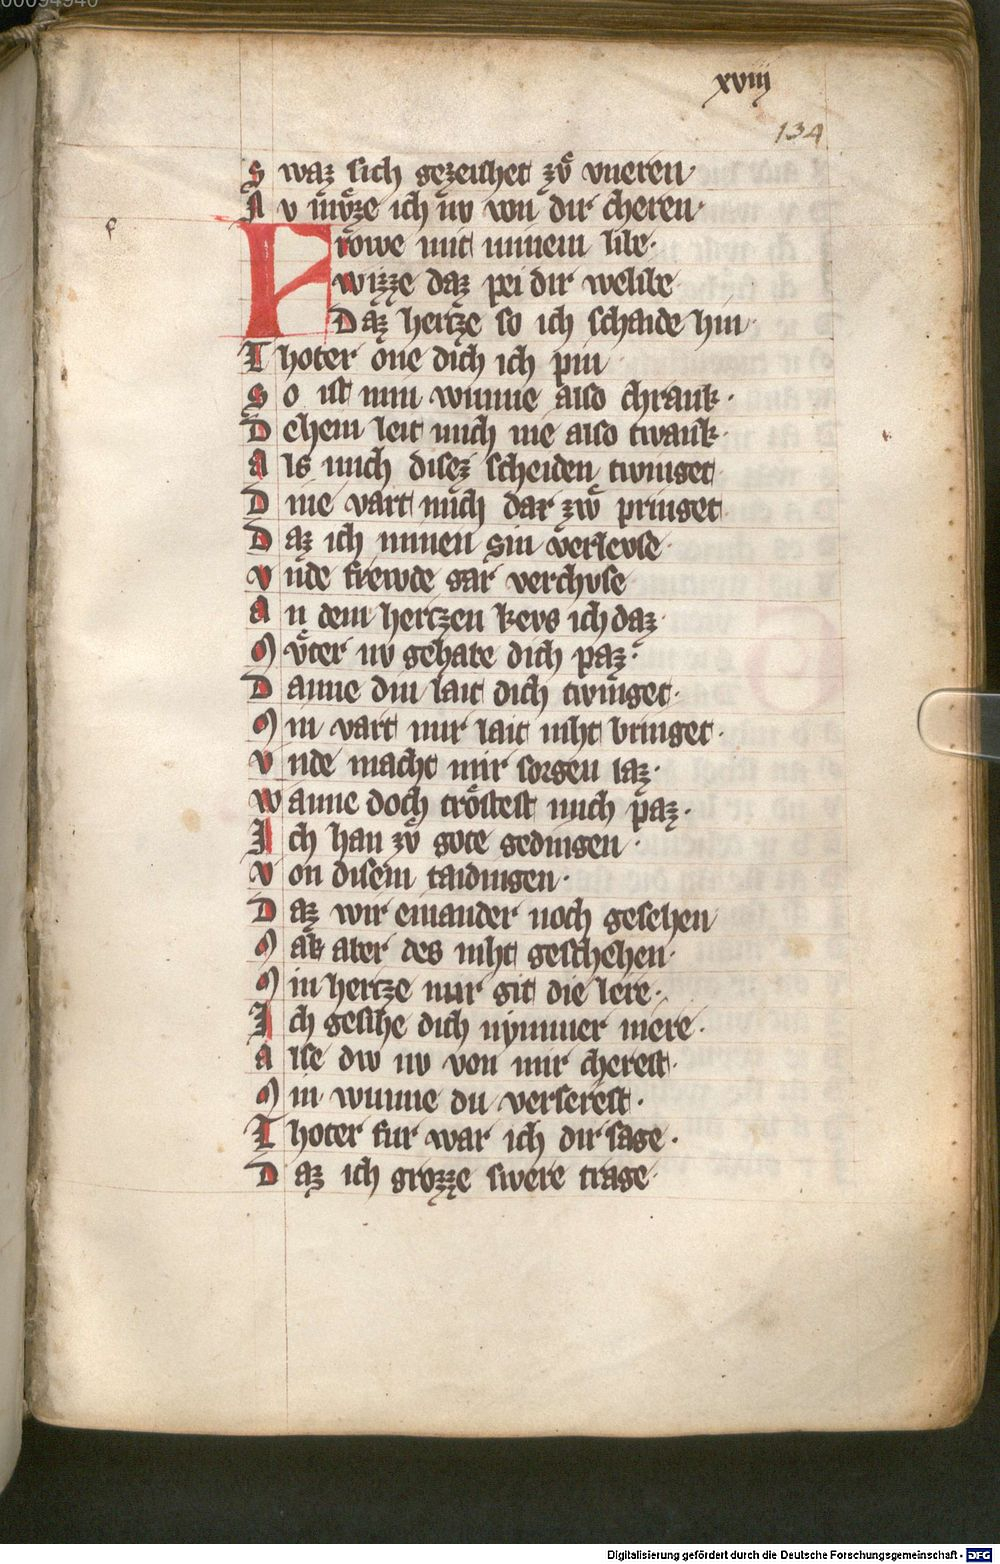 00094946
xviij
134
S waz sich gezeihet zů vneren·
N v můze ich nv von dir cheren·
e
F rowe mit minem libe·
wizze daz pei dir welibe
Daz hertze so ich schaide hin·
T hoter one dich ich pin
S o ist min wunne also chrank·
D ehein leit mich nie also twank·
A ls mich disez scheiden twinget
D nie vart mich dar zẘ pringet·
D az ich minen sin verlevse·
V nde frewde gar verchvse
A n dem hertzen kevs ich daz·
M vͦter nv gehabe dich paz·
D anne din lait dich twinget·
M in vart mir lait niht bringet·
V nde macht mir sorgen laz·
W anne doch tröstest mich paz·
I ch han zů gote gedingen·
V on disem taidingen·
D az wir einander noch gesehen
M ak aber des niht geschehen·
M in hertze mir git die lere·
I ch gesihe dich nymmer mere·
A lse dw nv von mir cherest·
M in wunne du verserest·
T hoter fur war ich dir sage·
D az ich grozze swere trage·
Digitalisierung gefördert durch die Deutsche Forschungsgemeinschaft - DFG